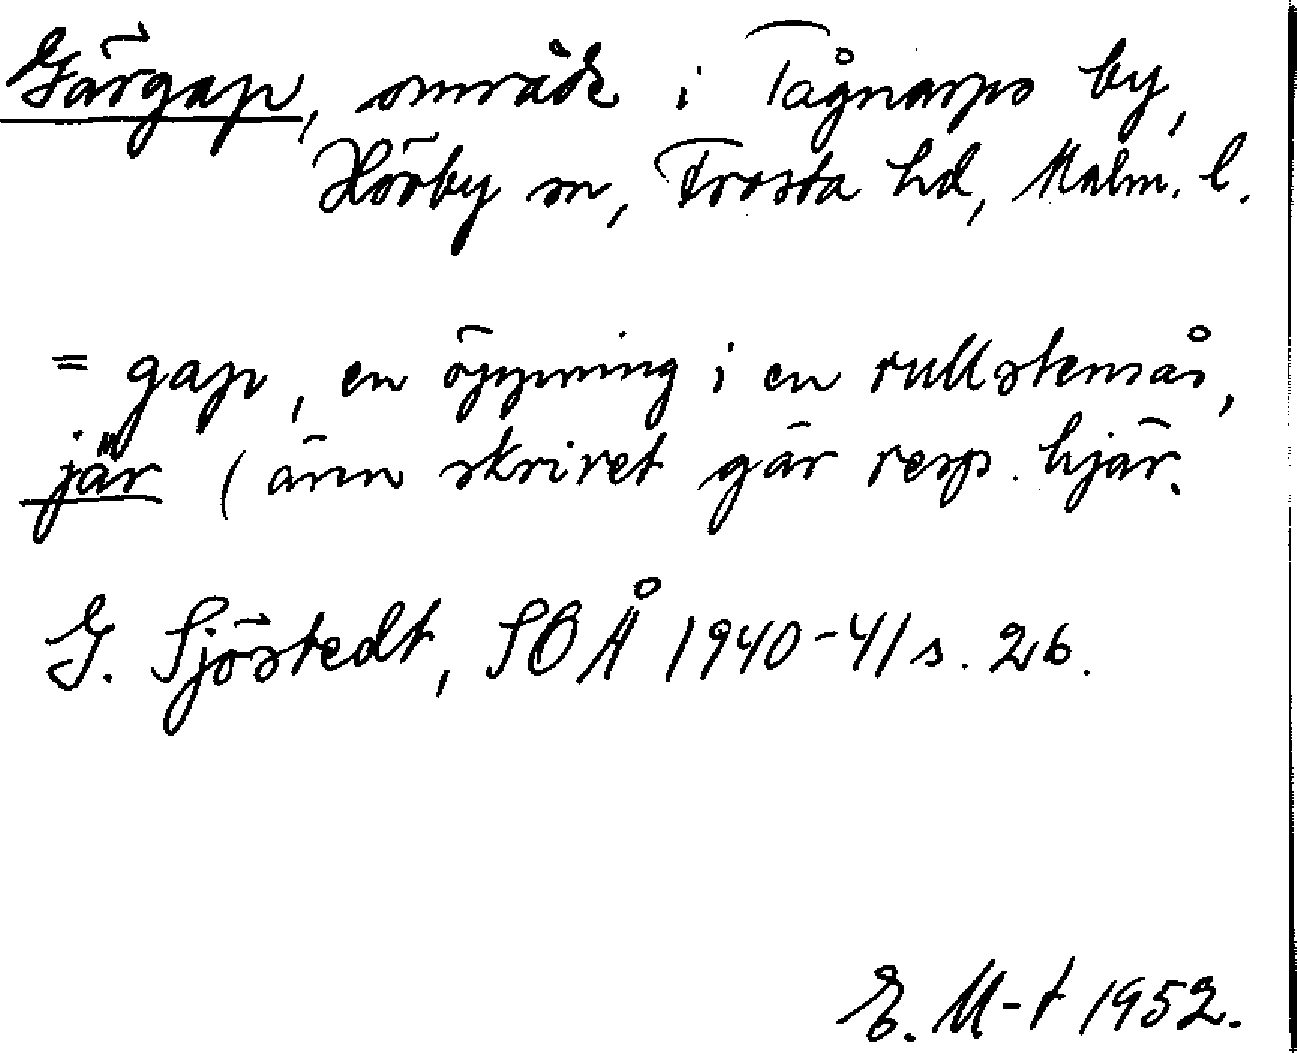 Gärgap, område i Tågnarps by,
Hörby sn, Frosta hd, Malm. l.
= gap, en öppning i en rullstensås,
jär (även skrivet gär resp. hjär.
G. Sjöstedt, SOÅ 1940-41 s. 26.
E. M-t 1952.